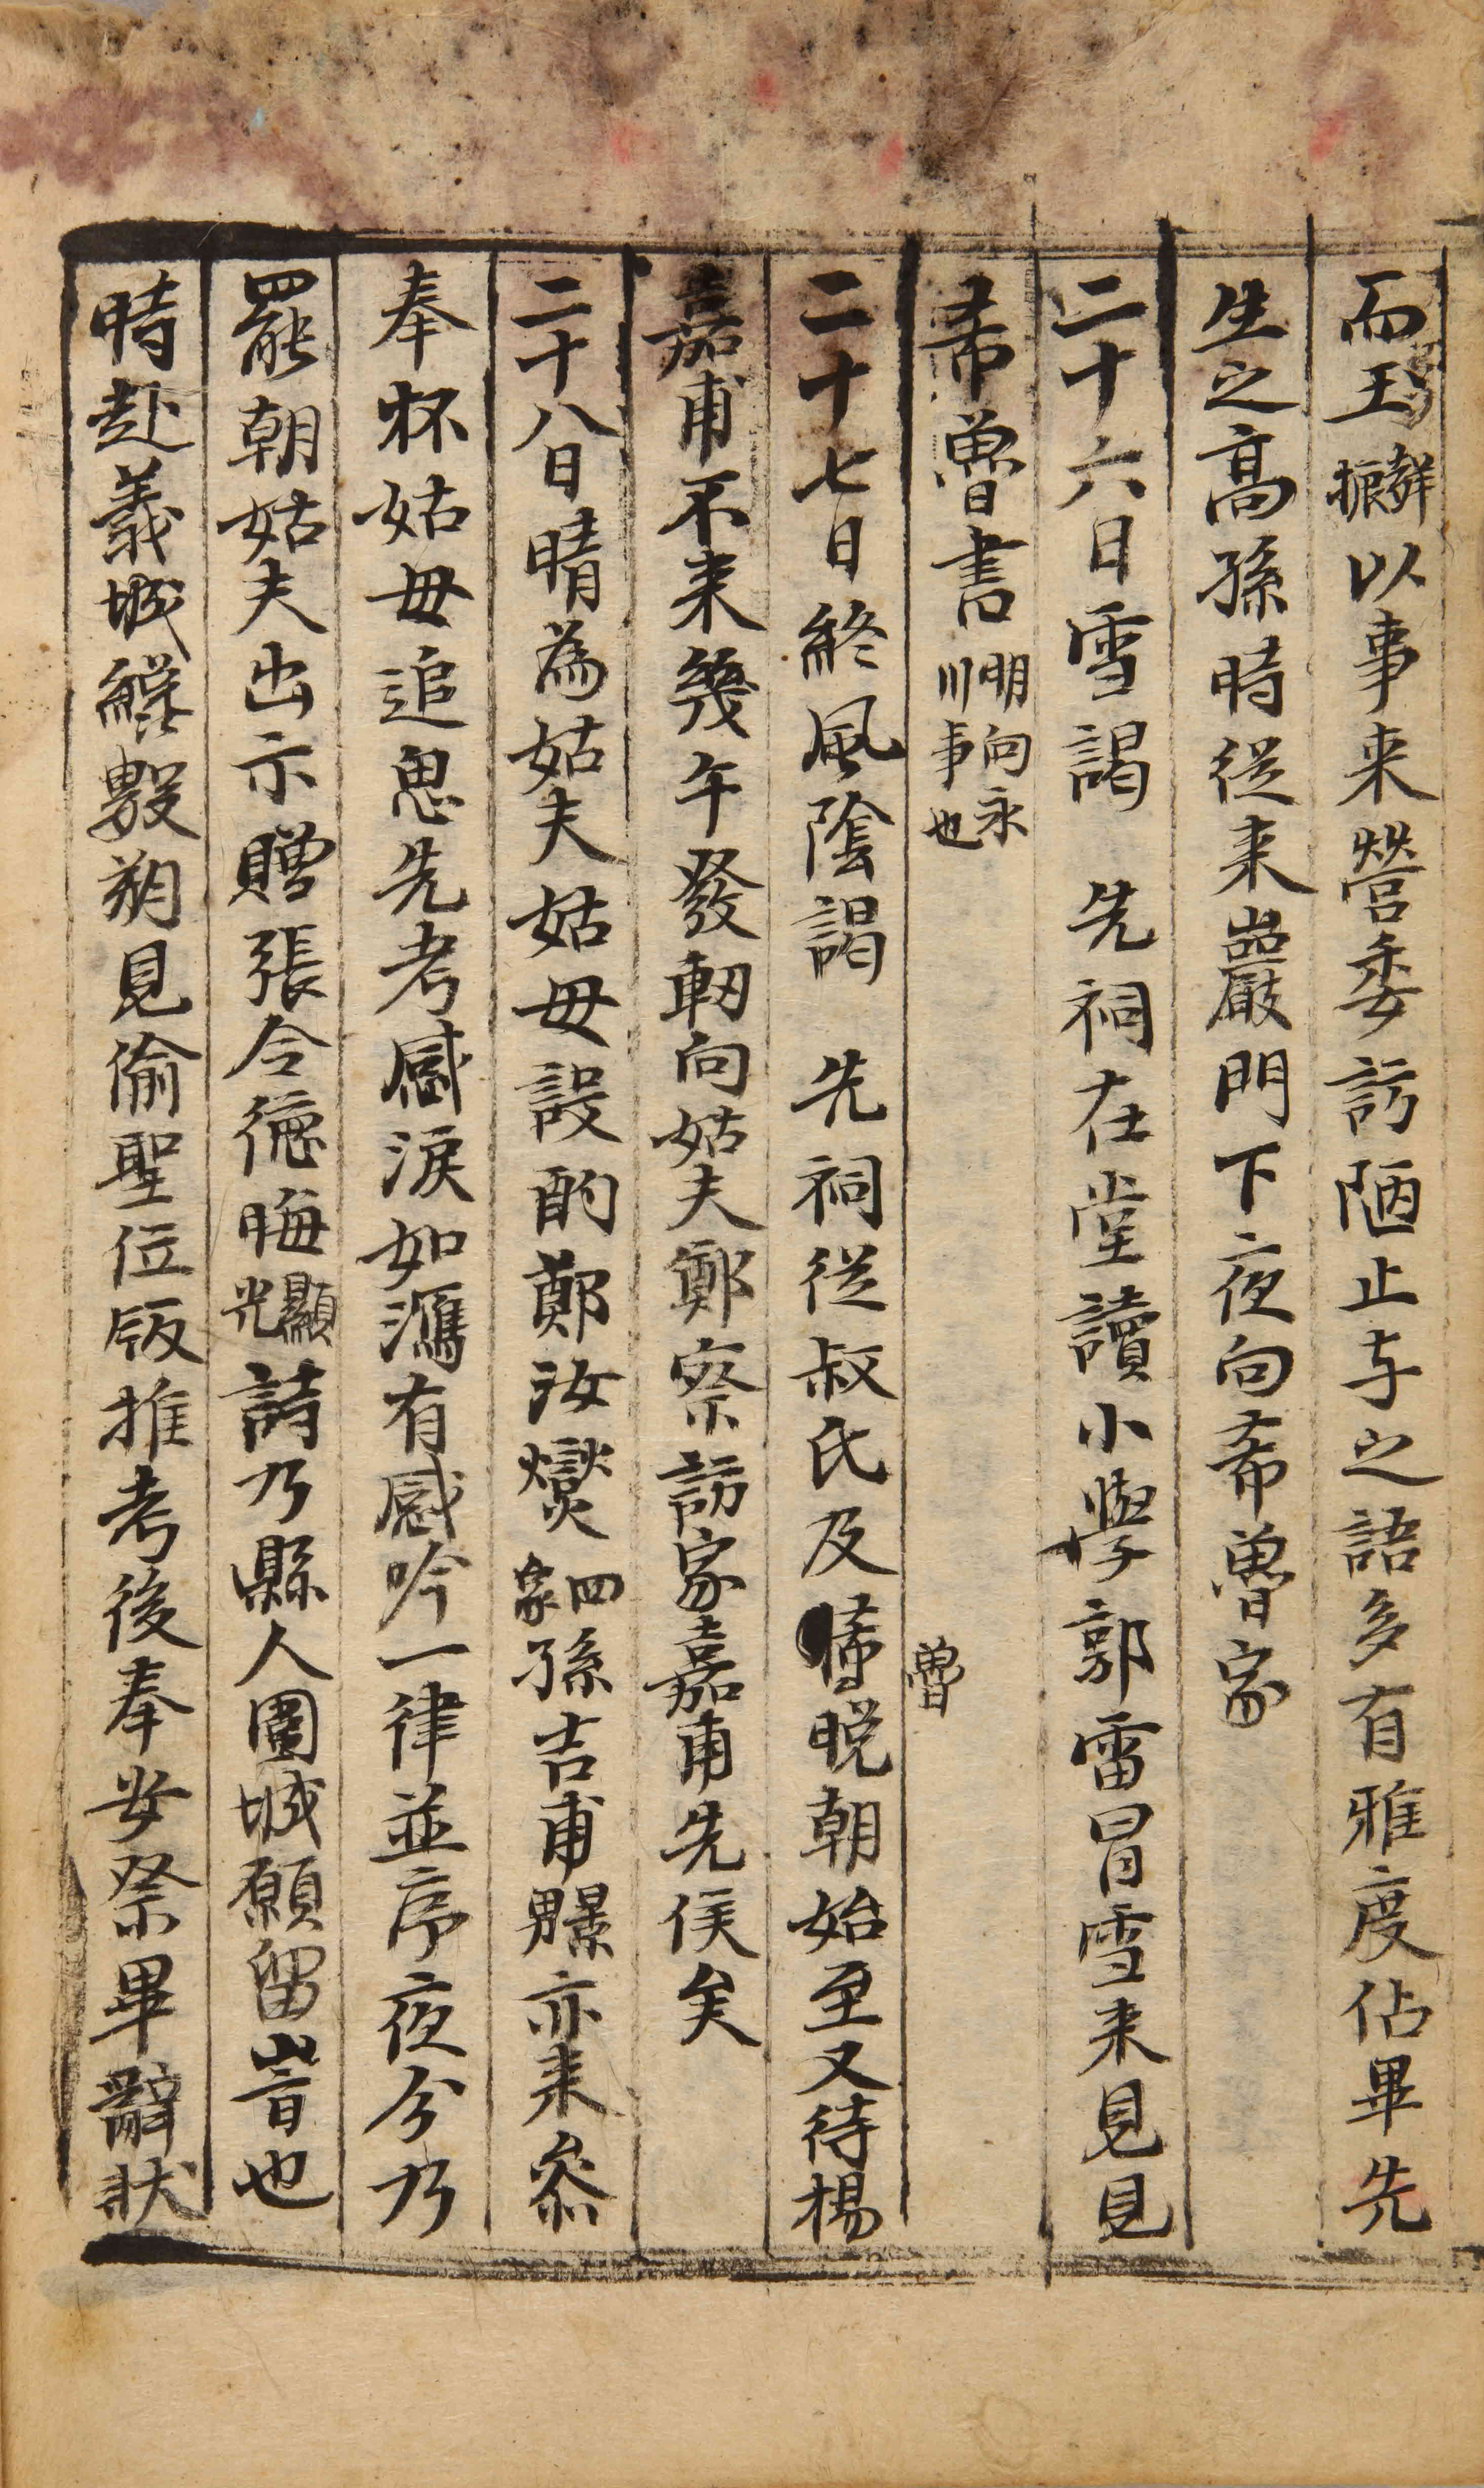 而玉振麟以事来營委訪陋止与之語多有雅度佔畢先
生之高孫時従来巖門下夜向希魯家
二十六日雪謁 先祠在堂讀小學郭雷冒雪来見見
希魯書明向永川事也
二十七日終風陰謁 先祠従叔氏及希魯晩朝始至又待楊
嘉甫不来幾午發軔向姑夫鄭察訪家嘉甫先俟矣
二十八日晴為姑夫姑母設酌鄭汝燮四象孫吉甫㬌亦来參
奉杯姑母追思先考感淚如瀉有感吟一律並序夜分乃
罷朝姑夫出示贈張令德晦顯光詩乃縣人圍城願留旹也
時赴義城纔數朔見偷聖位版推考後奉安祭畢辭狀